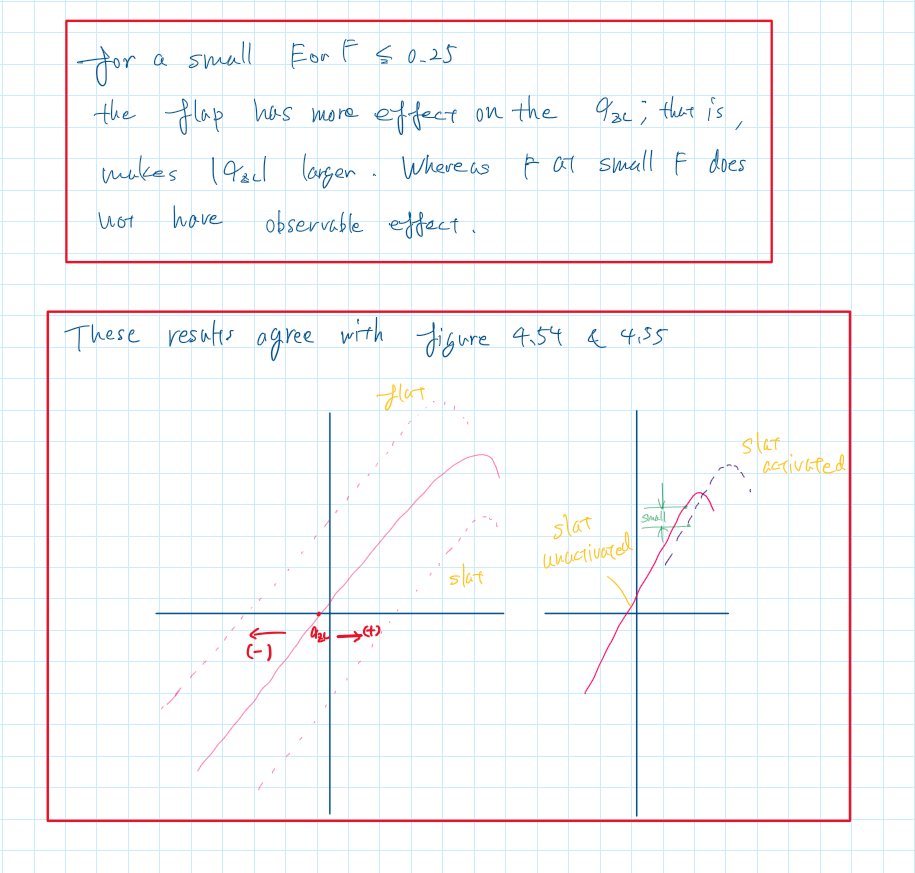 for a small E or F ≤ 0.25
the flap has more effect on the αzL; that is,
makes |αzL| larger. Whereas F at small F does
not have observable effect.
These results agree with figure 4.54 & 4.55
flat
slat
αzL
(-)
(+)
slat
activated
small
slat
unactivated